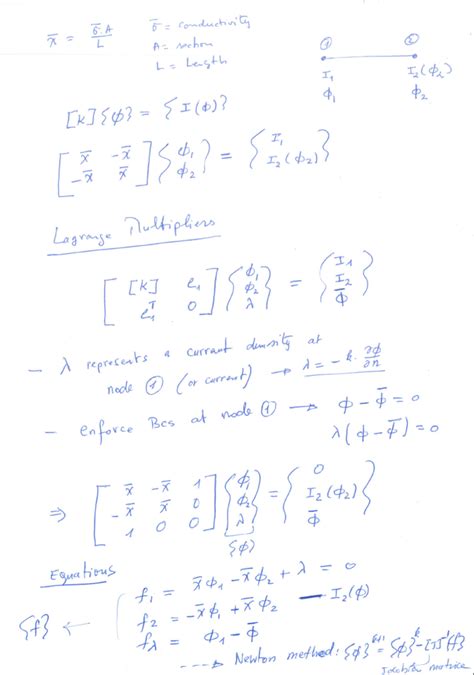 x̄ = σ̄.A / L    σ̄ = conductivity
A = section
L = Length
① ②
I₁ I₂(ϕ₂)
ϕ₁ ϕ₂
[k]{ϕ} = {I(ϕ)}
[x̄ -x̄; -x̄ x̄]{ϕ₁; ϕ₂} = {I₁; I₂(ϕ₂)}
Lagrange Multipliers
[[k] e₁; e₁ᵀ 0]{ϕ₁; ϕ₂; λ} = {I₁; I₂; Φ̄}
- λ represents a current density at
node ① (or current) → λ = -k. ∂ϕ/∂n
- enforce Bcs at node ① → ϕ - Φ̄ = 0
λ(ϕ - Φ̄) = 0
⇒ [x̄ -x̄ 1; -x̄ x̄ 0; 1 0 0]{ϕ₁; ϕ₂; λ} = {0; I₂(ϕ₂); Φ̄}
{ϕ}
Equations
{f} ← { f₁ = x̄ϕ₁ - x̄ϕ₂ + λ = 0
f₂ = -x̄ϕ₁ + x̄ϕ₂ - I₂(ϕ)
f_λ = ϕ₁ - Φ̄
---> Newton method: {ϕ}ᵏ⁺¹ = {ϕ}ᵏ - [J]⁻¹{f}